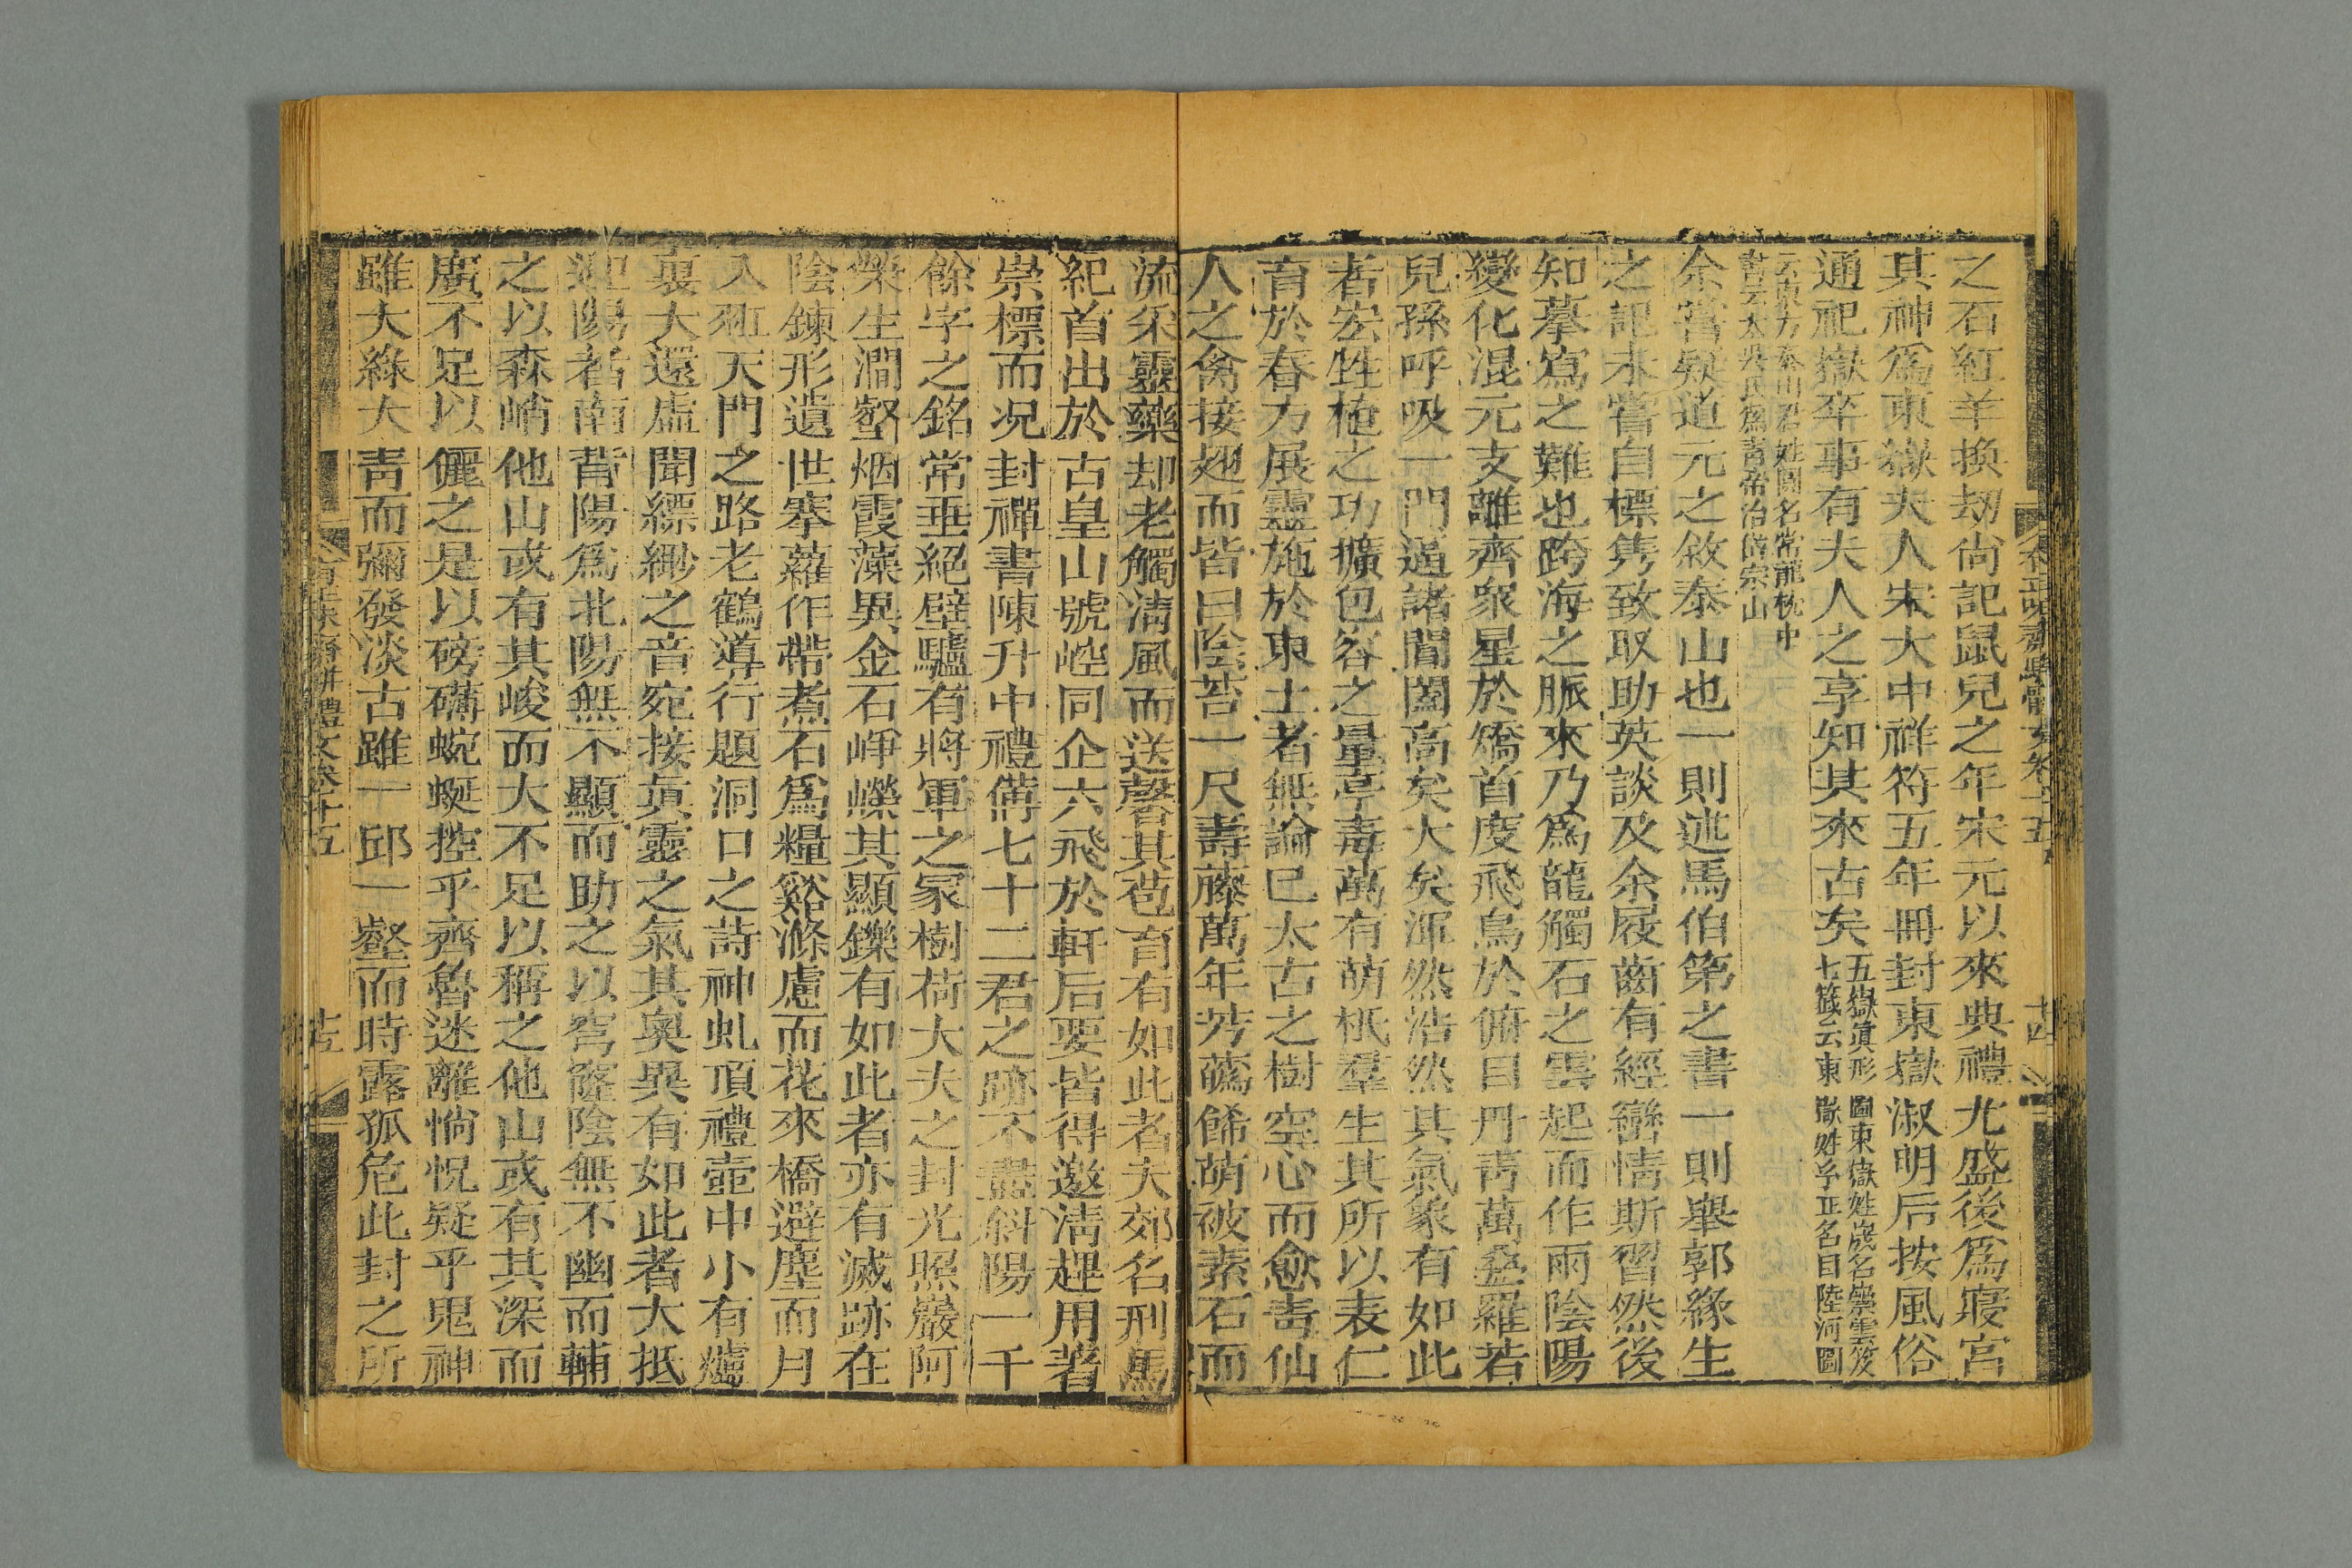 之石紅羊換刼尙記鼠兒之年宋元以來典禮尤盛後爲寢宮
其神爲東嶽夫人宋大中祥符五年冊封東嶽淑明后按風俗
通祀嶽卒事有夫人之享知其來古矣五嶽眞形圖東嶽姓歲名崇雲笈
七籤云東嶽姓
名目陸河圖
泰山君姓圓名常龍枕中
書云太昊氏爲靑帝治岱宗山
余嘗疑道元之敘泰山也一則述馬伯第之書一則舉郭緣生
之記未嘗自標雋致取助英談及余屐齒有經巒情斯習然後
知摹寫之難也跨海之脈來乃爲龍觸石之雲起而作雨陰陽
變化混元支離齊衆星於矯首度飛鳥於俯目丹靑萬疊羅若
兒孫呼吸一門通諸閶闔高矣大矣渾然浩然其氣象有如此
者宏甡植之功擴包容之量亭毒萬有萌柢羣生其所以表仁
育於春方展靈施於東土者無論已太古之樹空心而愈靑仙
人之禽接翅而皆曰陰苔一尺壽藤萬年芳蘤餙萌被素石而
流采靈藥却老觸淸風而送馨其苞育有如此者夫郊名刑馬
紀首出於古皇山號崆同企六飛於軒后要皆得邀淸趯用著
崇標而况封禪書陳升中禮備七十二君之跡不盡斜陽一千
餘字之銘常垂絕壁驢有將軍之冢樹荷大夫之封光照巖阿
榮生澗壑烟霞藻異金石崢嶸其顯鑠有如此者亦有滅跡在
陰鍊形遺世搴蘿作帶煮石爲糧谿滌慮而花來橋避塵而月
入 天門之路老鶴導行題洞口之詩神虬頂禮壺中小有爐
裏大還虛聞縹緲之音宛接眞靈之氣其奧異有如此者大抵
迎陽者南背陽爲北陽無不顯而助之以穹窿陰無不幽而輔
之以森峭他山或有其峻而大不足以稱之他山或有其深而
廣不足以儷之是以磅礴蜿蜒控乎齊魯迷離惝怳疑乎鬼神
雖大綠大靑而彌發淡古雖一邱一壑而時露孤危此封之所